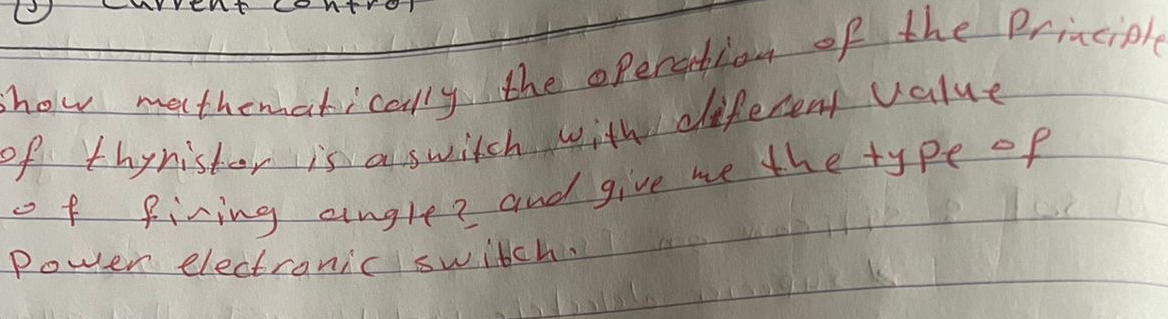 (3) Current Control
show mathematically the operation of the Principle
of thyristor is a switch with diferent value
of firing angle? and give me the type of
Power electronic switch.